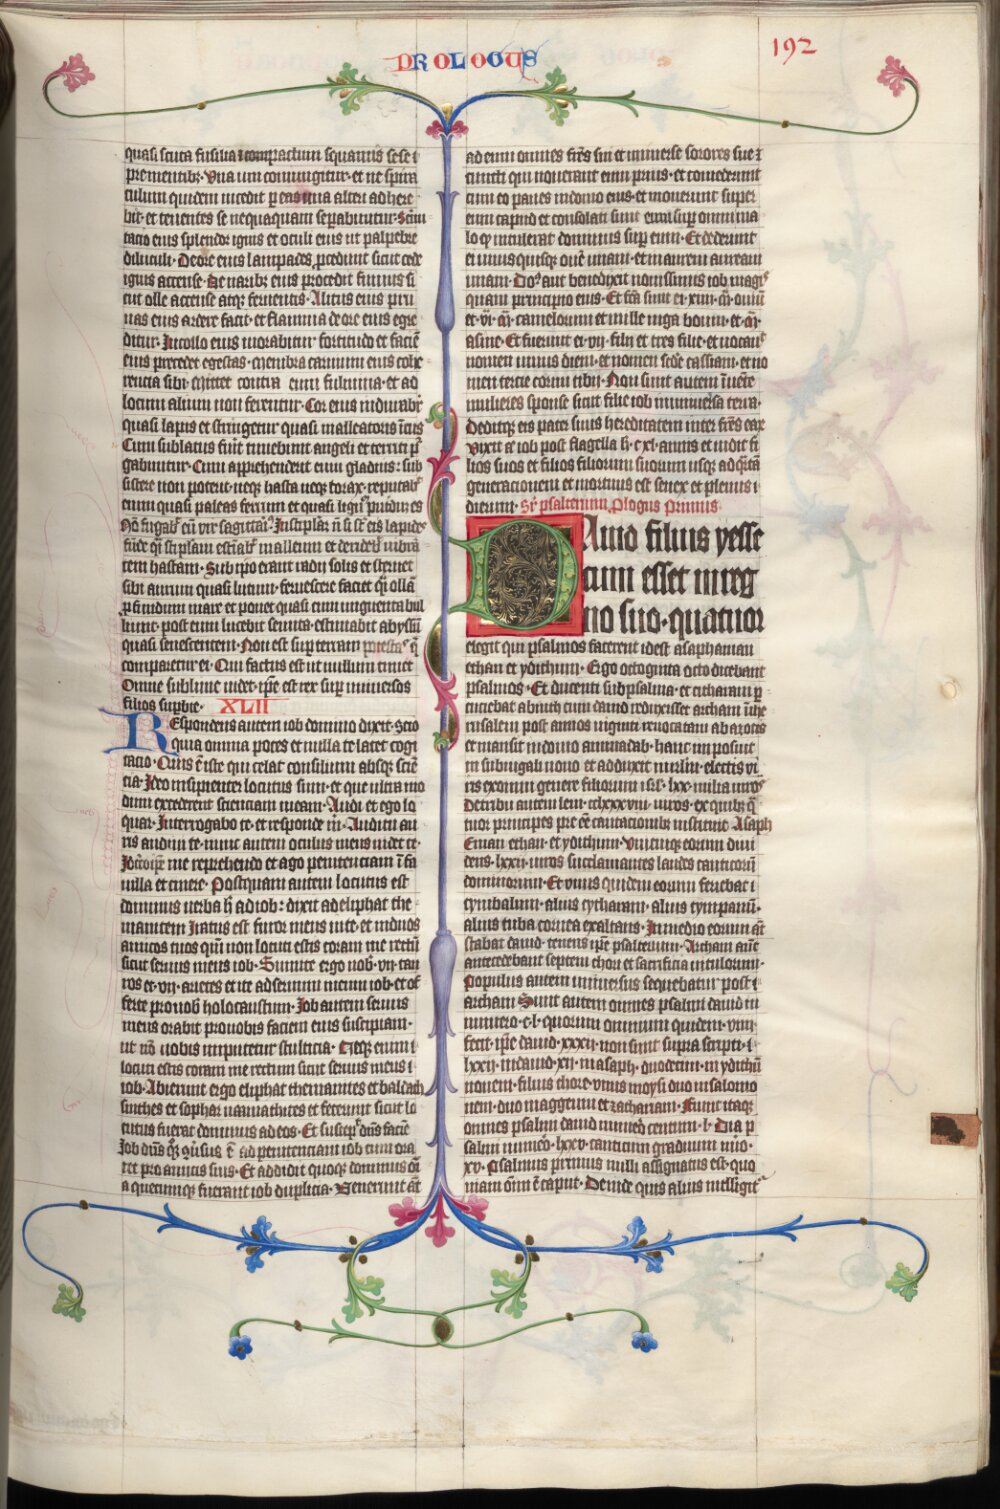 PROLOGUS
192
quasi scuta fusilia et compactum squamis sese
prementibz. Una uni coniungitur. et ne spira
culum quidem incedit per eas. una alteri adhere
bit. et tenentes se nequaquam separabuntur. Stern
tacio eius splendor ignis et oculi eius ut palpebre
diluculi. De ore eius lampades procedunt sicut tede
ignis accense. De naribz eius procedit fumus si
cut olle accense atqz feruentis. Alitus eius pru
nas eius ardere facit. et flamma de ore eius egre
ditur. In collo eius morabitur fortitudo et faciem
eius precedet egestas. Membra carnium eius cohe
rencia sibi. Mittet contra eum fulmina. et ad
locum alium non ferentur. Cor eius indurabitur
quasi lapis et stringetur quasi malleatoris incus
Cum sublatus fuerit timebunt angeli et territi pur
gabuntur. Cum apprehenderit eum gladius: sub
sistere non poterit. neqz hasta neqz torax. reputabit
enim quasi paleas ferrum et quasi lignum putridum es
Non fugabit eum vir sagittarius. In stipulam
stipulam estimabit malleum et deridebit vibran
tem hastam. Sub ipso erunt radii solis et sternet
sibi aurum quasi lutum. feruescere faciet quasi ollam
profundum mare et ponet quasi cum unguenta bul
liunt. post eum lucebit semita. estimabit abyssum
quasi senescentem. Non est super terram potestas que
comparetur ei. Qui factus est ut nullum timeret
Omne sublime videt. ipse est rex super universos
filios superbie. XLII
REspondens autem iob domino dixit. Scio
quia omnia potes et nulla te latet cogi
tacio. Quis est iste qui celat consilium absqz scien
cia. Ideo insipienter locutus sum. et que ultra mo
dum excederent scienciam meam. Audi et ego lo
quar. Interrogabo te. et responde michi. Auditu au
ris audiui te. nunc autem oculus meus videt te.
Idcirco ipse me reprehendo et ago penitenciam in fa
uilla et cinere. Postquam autem locutus est
dominus verba hec ad iob: dixit ad eliphat the
maniten Iratus est furor meus in te. et in duos
amicos tuos quoniam non locuti estis coram me rectum
sicut seruus meus iob. Sumite ergo vobis. vii. tau
ros et. vii. arietes et ite ad seruum meum iob. et of
ferte pro vobis holocaustum. Iob autem seruus
meus orabit pro vobis faciem eius suscipiam.
ut non vobis imputetur stulticia. Neqz enim
locuti estis coram me rectum sicut seruus meus
iob. Abierunt ergo eliphat themanites et baldath
suithes et sophar naamathites et fecerunt sicut lo
cutus fuerat dominus ad eos. Et suscepit dominus faciem
Iob dominus quoqz conuersus est ad penitenciam iob cum ora
ret pro amicis suis. Et addidit quoqz dominus omni
a quecumqz fuerant iob duplicia. Venerunt autem
ad eum omnes fratres sui et universe sorores sue et
cuncti qui nouerant eum prius. et comederunt
cum eo panes in domo eius. et mouerunt super
eum caput et consolati sunt eum super omni ma
lo quod intulerat dominus super eum. Et dederunt
ei unusquisqz ouem unam. et inaurem auream
unam. Dominus autem benedixit nouissimis iob magis
quam principio eius. Et facta sunt ei. xiiii. milia ouium
et. vi. milia. camelorum et mille iuga boum. et. mille.
asine. Et fuerunt ei. vii. filii et tres filie. et vocauit
nomen unius diem. et nomen secunde cassiam. et no
men tercie cornu tibii. Non sunt autem inuente
mulieres sponse sicut filie iob in uniuersa terra.
Deditqz eis pater suus hereditatem inter fratres earum
Vixit autem iob post flagella hec. cxl. annis et vidit fi
lios suos et filios filiorum suorum usqz ad quartam
generacionem et mortuus est senex et plenus
dierum. Super psalterium. Prologus primus.
DAuid filius yesse
cum esset in reg
no suo. quatuor
elegit qui psalmos facerent idest asaph eman
ethan et ydithun. Ergo octoginta octo dicebant
psalmos. Et ducenti subpsalma. et citharam per
cuciebat abiuth cum dauid reduxisset archam in ihe
rusalem post annos viginti reuocatam ab azotis
et mansit in domo aminadab. hanc imposuit
in subiugali nouo et adduxit in ierusalem. electis vi
ris ex omni genere filiorum israel. lxx. milia viros
De tribu autem leui. cclxxxviii. viros. ex quibus qua
tuor principes preesse cantacionibz instituit Asaph
Eman ethan. et ydithun. Unicuiqz eorum diui
dens. lxxii. viros succlamantes laudes canticorum
dominorum. Et unus quidem eorum feriebat
cymbalum. alius cytharam. alius tympanum.
alius tuba cornea exaltans. In medio eorum autem
stabat dauid. tenens ipse psalterium. Archam autem
antecedebant septem chori et sacrificia vitulorum.
Populus autem vniuersus sequebatur post
archam Sunt autem omnes psalmi dauid in
numero. c. l. quorum omnium quidem. viiii.
fecit. ipse dauid. xxxii. non sunt supra scripti.
lxxii. in dauid. xii. in asaph. duodecim. in ydithun
nouem. filiis chore. vnus moysi duo in salomo
nem. duo in aggeum et zachariam. Fiunt itaqz
omnes psalmi dauid numero centum. l. Dia p
salmi numero. lxxv. canticum graduum numero.
xv. Psalmus primus nulli assignatus est. quo
niam omnium est caput. Deinde quis alius intelligitur